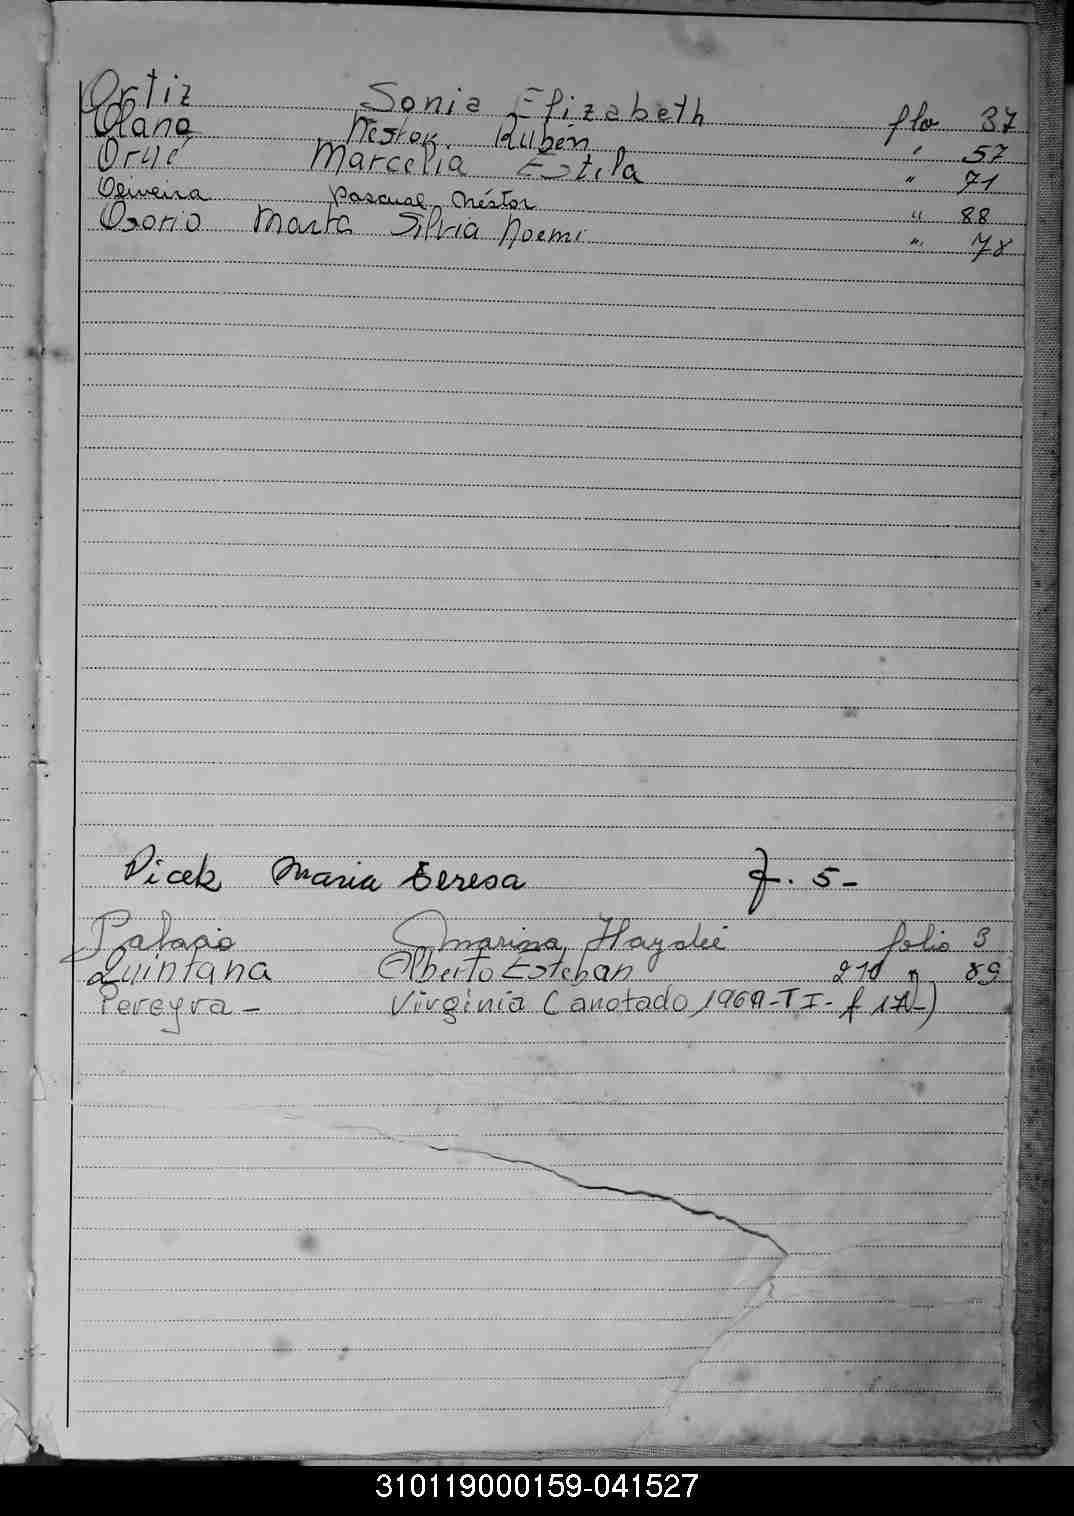 Ortiz Sonia Elizabeth flo 37
Olano Néstor Rubén " 57
Orué Marcelia Estela " 71
Oliveira Pascual Néstor " 88
Osorio Marta Silvia Noemi " 78
Picek Maria Teresa f. 5-
Palacio Marina Haydeé folio 3
Quintana Alberto Esteban 210 " 89
Pereyra - Virginia (anotado 1969-TI- f 17)
310119000159-041527